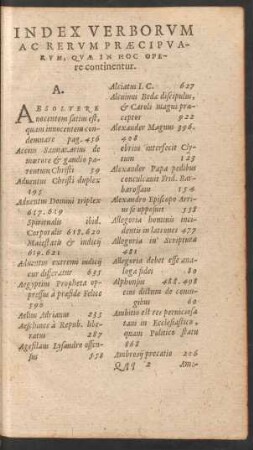 INDEX VERBORVM
AC RERVM PRÆCIPVA-
RVM, QVÆ IN HOC OPE-
re continentur.
A.
ABSOLVERE
nocentem satius est,
quam innocentem con-
demnare pag. 456
Accını de
mærore & gaudio pa-
rentium Christi 59
Aduentus Christi duplex
195
Aduentus Domini triplex
617.619
Spiritualis ibid.
Corporalis 618.620
Maiestatis & iudicij
619.621
Aduentus extremi iudicij
cur differatur 635
Aegyptius Propheta op-
pressus à præside Felice
590
Aelius Adrianus 235
Aeschines à Repub. libe-
ratus 287
Agesilaus Lysandro offen-
sus 578
Alciatus I.C. 627
Alcuinus Bedæ discipulus,
& Caroli Magni præ-
ceptor 922
Alexander Magnus 396.
408
ebrius interfecit Cly-
tum 125
Alexander Papa pedibus
conculcauit Frid. Bar-
barossam 154
Alexander Episcopus Arrio
se opposuit 338
Allegoria hominis inci-
dentis in latrones 475
Allegoria in Scriptura
481
Allegoria debet esse ana-
loga fidei 80
Alphonsus 488.498
eius dictum de coniu-
gibus 60
Ambitio est res perniciosa
tam in Ecclesiastico,
quam Politico statu
868
Ambrosij precatio 206
Qqq 2 Am-